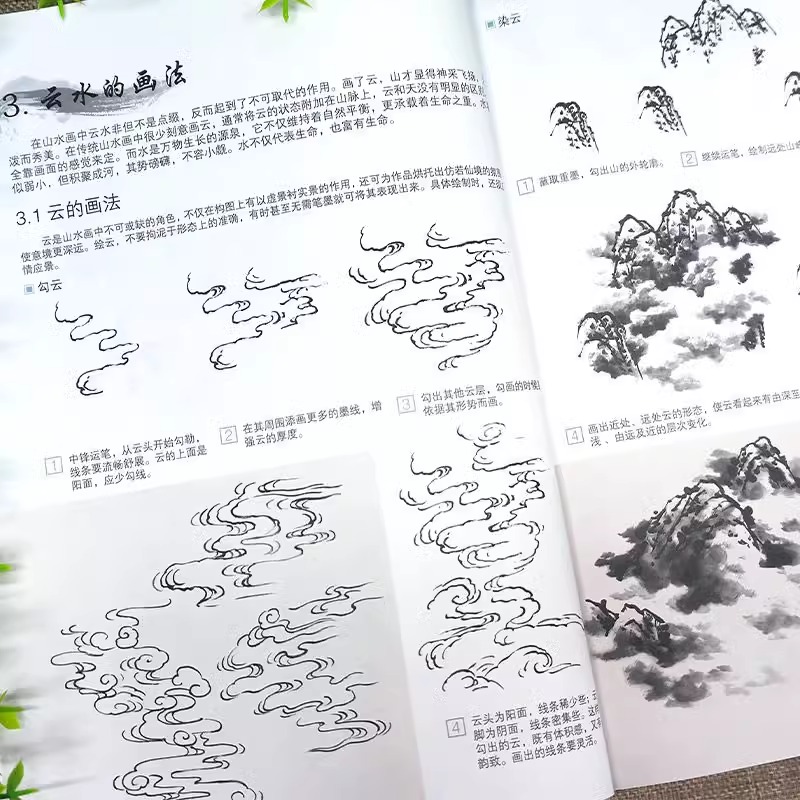 3. 云水的画法
在山水画中云水非但不是点缀，反而起到了不可取代的作用。画了云，山才显得神采飞扬，
泼而秀美。在传统山水画中很少刻意画云，通常将云的状态附加在山脉上，云和天没有明显的区别
全靠画面的感觉来定。而水是万物生长的源泉，它不仅维持着自然平衡，更承载着生命之重。水
似弱小，但积聚成河，其势磅礴，不容小觑。水不仅代表生命，也富有生命。
3.1 云的画法
云是山水画中不可或缺的角色，不仅在构图上有以虚景衬实景的作用，还可为作品烘托出仿若仙境的氛围
使意境更深远。绘云，不要拘泥于形态上的准确，有时甚至无需笔墨就可将其表现出来。具体绘制时，还
情应景。
勾云
1 中锋运笔，从云头开始勾勒，
线条要流畅舒展。云的上面是
阳面，应少勾线。
2 在其周围添画更多的墨线，增
强云的厚度。
3 勾出其他云层，勾画的时候
依据其形势而画。
4 云头为阳面，线条稀少些；云
脚为阴面，线条密集些。这
勾出的云，既有体积感，又
韵致。画出的线条要灵活。
染云
1 蘸取重墨，勾出山的外轮廓。
2 继续运笔，绘制远处山
4 画出近处、远处云的形态，使云看起来有由深至
浅、由远及近的层次变化。